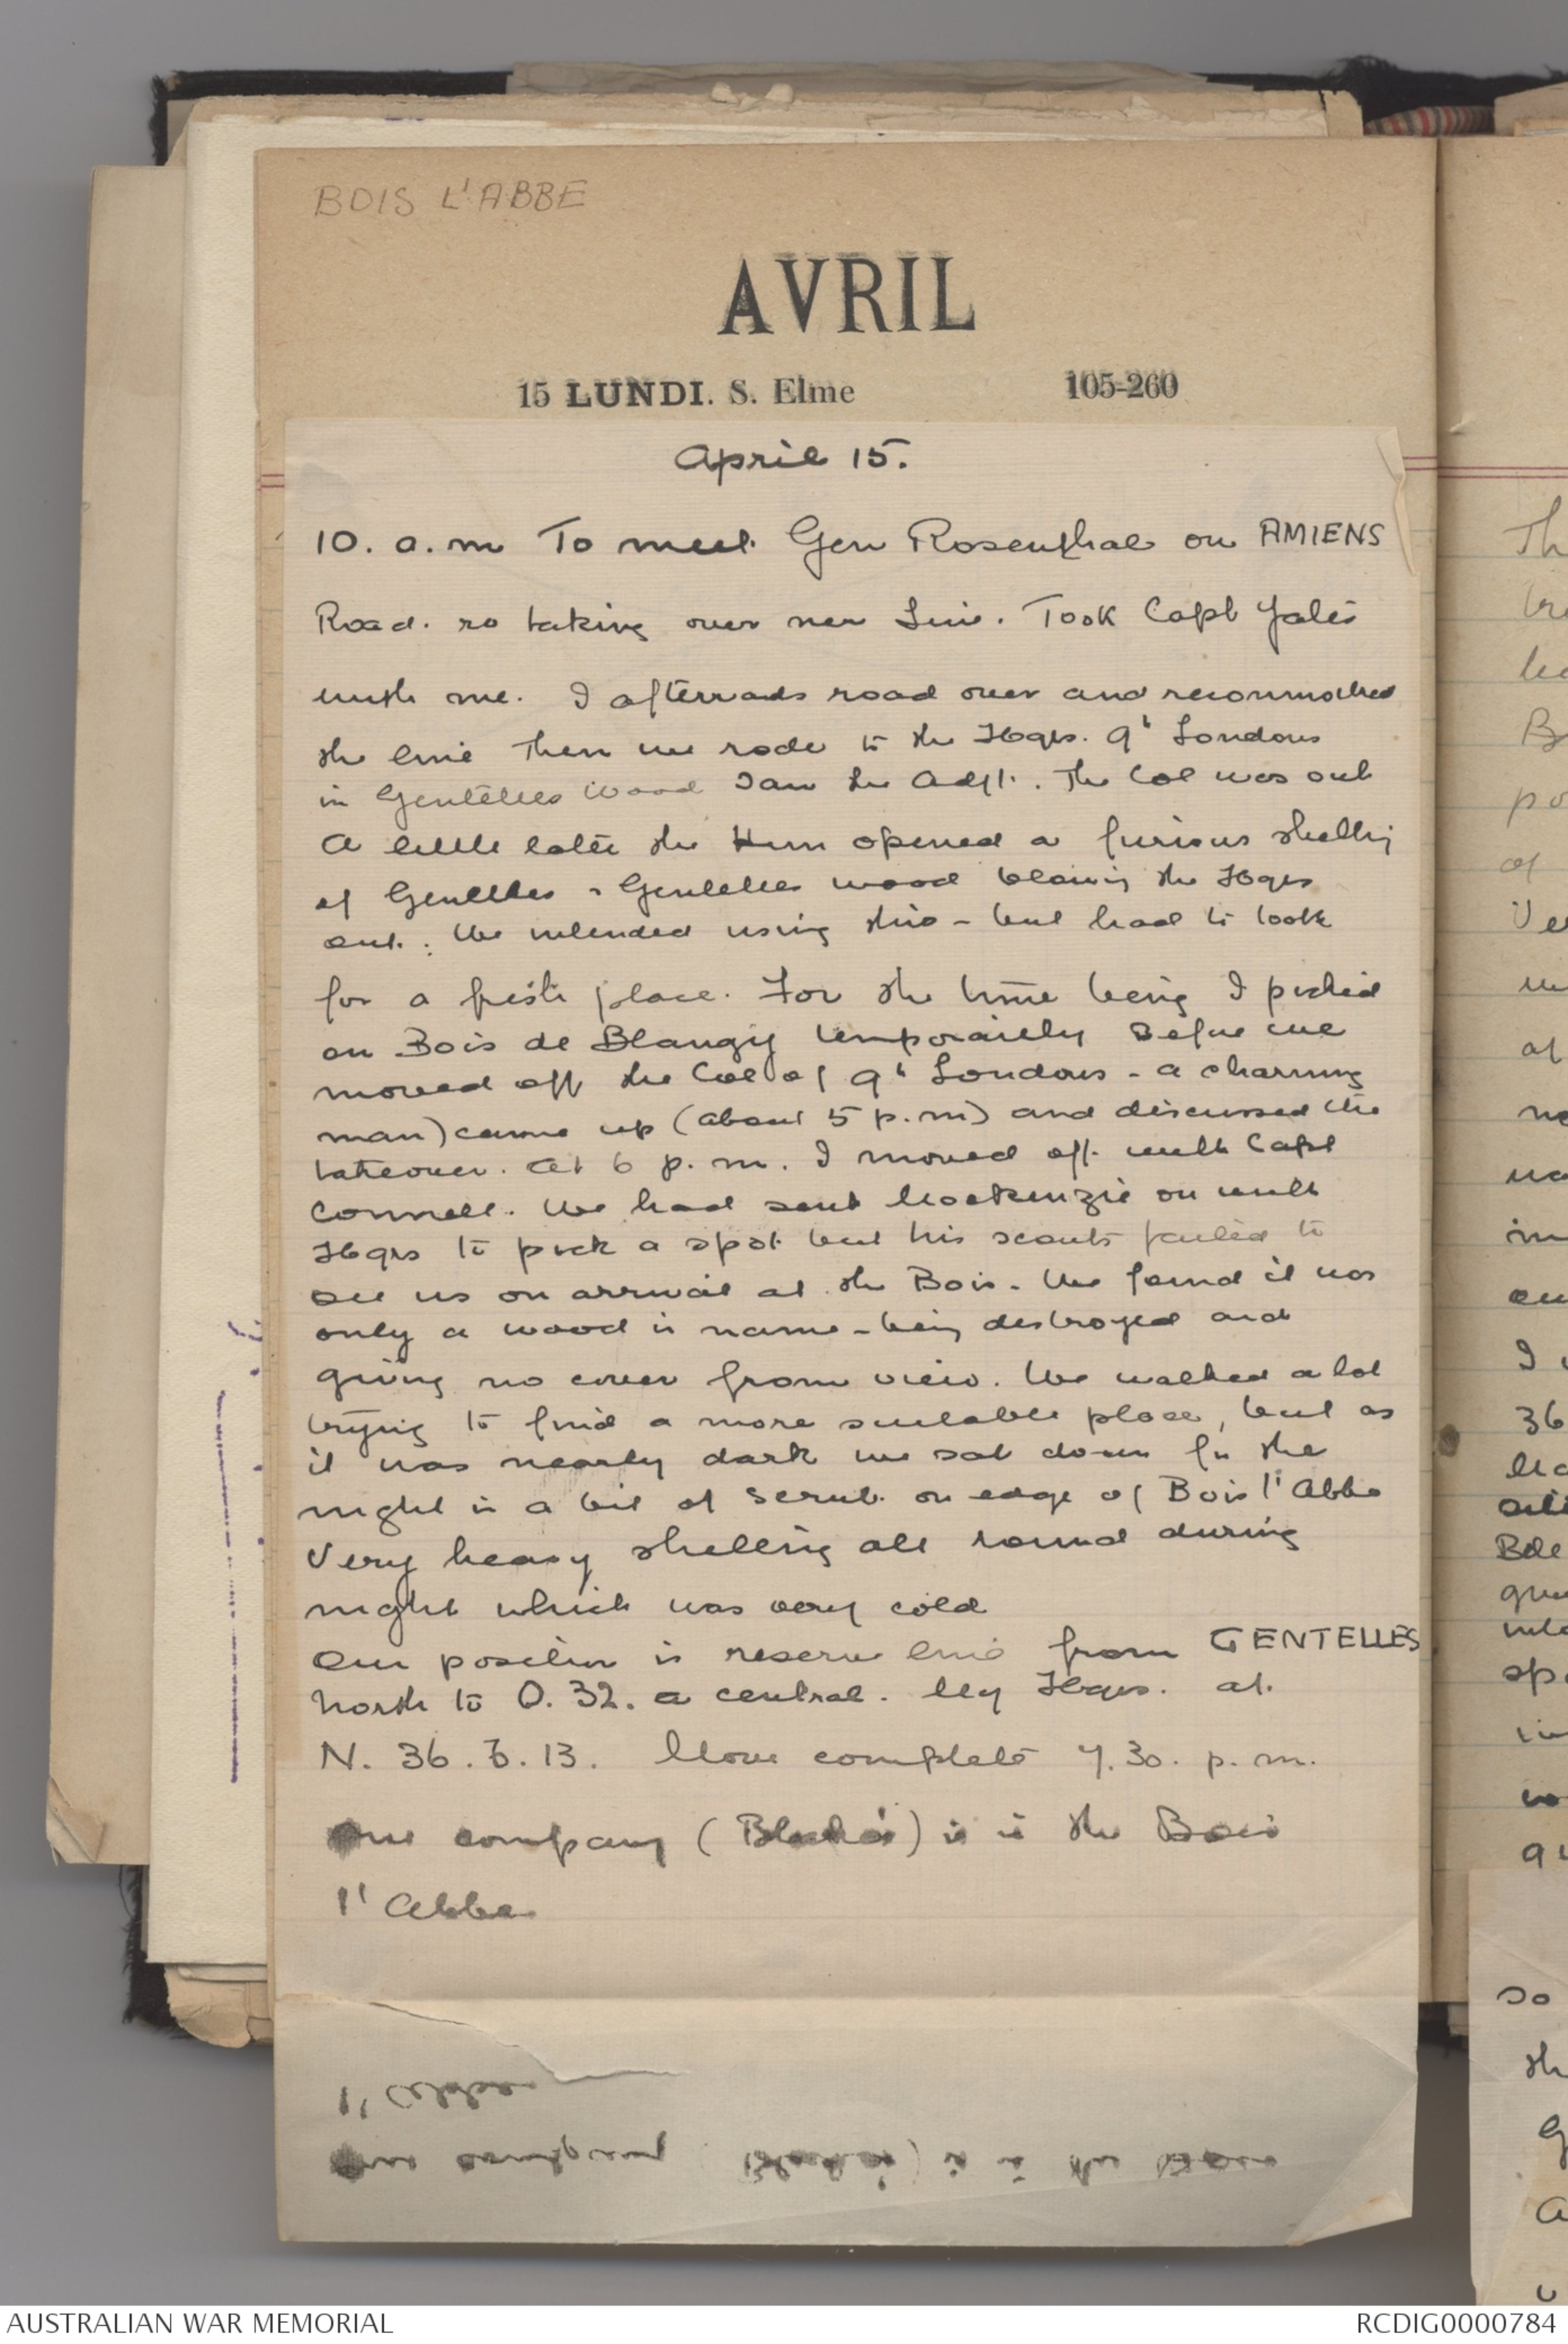 BOIS L'ABBE
AVRIL
15 LUNDI. S. Elme 105-260
April 15.
10. a.m To meet Gen Rosenthal on AMIENS
Road. re taking over new Line. Took Capt Yates
with me. I afterwads road over and reconnoitred
the line Then we rode to the Hqrs. 9th Londons
in Gentelles Wood Saw the Adjt. The Col was out
A little later the Hun opened a furious shelling
of Gentelles & Gentelles wood blowing the Hqrs
out. We intended using this - but had to look
for a fresh place. For the time being I picked
on Bois de Blangy temporarily Before we
moved off the Col of 9th Londons - a charming
man) came up (about 5 p.m) and discussed the
takeover. At 6 p.m. I moved off with Capt
Connell. We had sent Mackenzie on with
Hqrs to pick a spot but his scouts failed to
see us on arrival at the Bois. We found it was
only a wood in name - being destroyed and
giving no cover from view. We walked a lot
trying to find a more suitable place, but as
it was nearly dark we sat down for the
night in a bit of scrub on edge of Bois l'Abbe
Very heavy shelling all round during
night which was very cold
Our position is reserve line from GENTELLES
North to O. 32. a central. My Hqrs. at
N. 36. 13. Move complete 7.30. p.m.
One company ( ) is in the Bois
l'Abbe
Th
po
of
Ve
at
in
I
36
Bde
sp
in
so
th
AUSTRALIAN WAR MEMORIAL RCDIG0000784